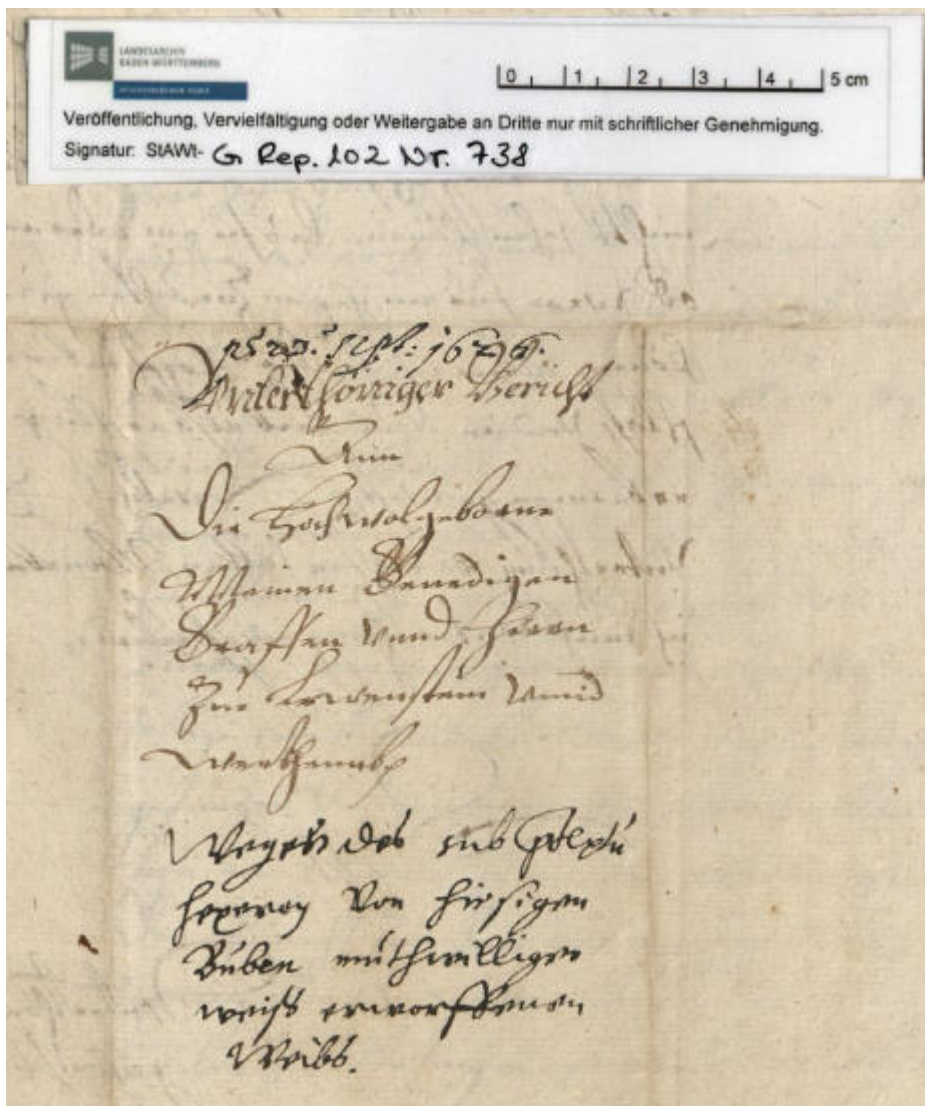 LANDESARCHIV
BADEN-WÜRTTEMBERG
0 1 2 3 4 5 cm
Veröffentlichung, Vervielfältigung oder Weitergabe an Dritte nur mit schriftlicher Genehmigung.
Signatur: StAWt- G Rep. 102 Nr. 738
Sept:
Vnterthöniger Bericht
Ann
Die Hochwolgeborne
Meinen Genedigen
Graffen Vnnd Herrn
Zue Lewenstein Vnnd
Werthheimb
Wegen des sub
hexerey Von hiesigen
Buben muthwilliger
weiß erworffenen
Weibs.